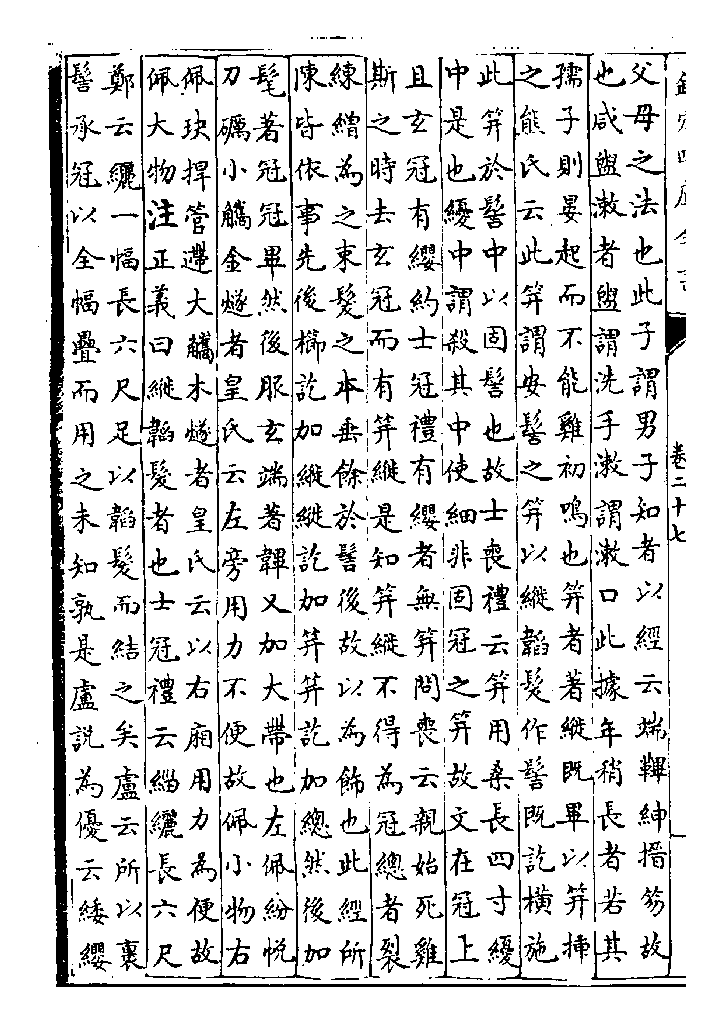 欽定四庫全書
卷二十七
父母之法也此子謂男子知者以經云端韠紳搢笏故
也咸盥漱者盥謂洗手漱謂漱口此據年稍長者若其
孺子則晏起而不能雞初鳴也笄者著縰既畢以笄揷
之熊氏云此笄謂安髻之笄以縰韜髮作髻既訖橫施
此笄於髻中以固髻也故士喪禮云笄用桑長四寸纋
中是也纋中謂殺其中使細非固冠之笄故文在冠上
且玄冠有纓約士冠禮有纓者無笄問喪云親始死雞
斯之時去玄冠而有笄縰是知笄縰不得為冠總者裂
練繒為之束髮之本垂餘於髻後故以為飾也此經所
陳皆依事先後櫛訖加縰縰訖加笄笄訖加總然後加
髦著冠冠畢然後服玄端著韠又加大帶也左佩紛帨
刀礪小觿金燧者皇氏云左旁用力不便故佩小物右
佩玦捍管遰大觿木燧者皇氏云以右廂用力為便故
佩大物注正義曰縰韜髮者也士冠禮云緇纚長六尺
鄭云纚一幅長六尺足以韜髮而結之矣盧云所以裹
髻承冠以全幅疊而用之未知孰是盧說為優云緌纓